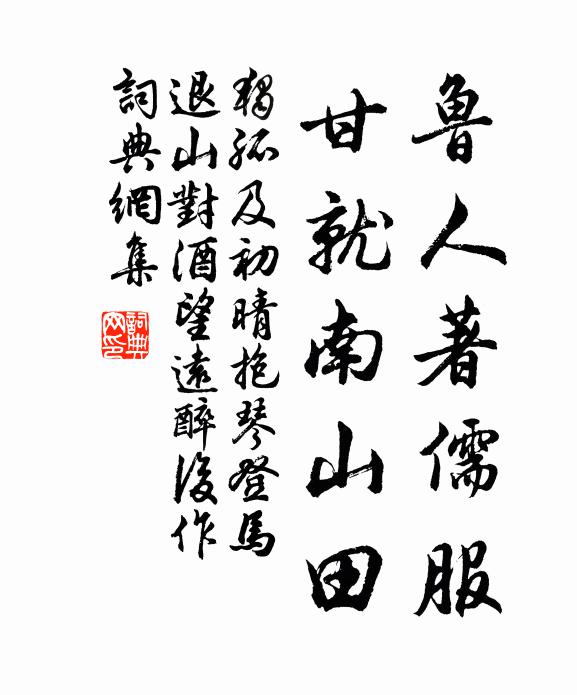 魯人著儒服
甘就南山田
獨孤及初晴抱琴登馬
退山對酒望遠醉後作
詞典網集
詞典
网印